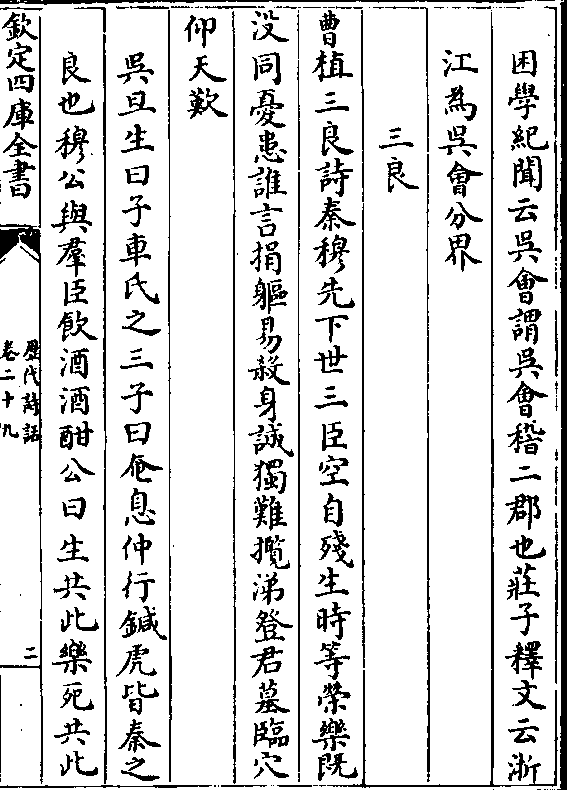 困學紀聞云吳會謂吳會稽二郡也莊子釋文云浙
江為吳會分界
三良
曹植三良詩秦穆先下世三臣空自殘生時等榮樂既
没同憂患誰言捐軀易殺身誠獨難攬涕登君墓臨穴
仰天歎
吳旦生曰子車氏之三子曰奄息仲行鍼虎皆秦之
良也穆公與羣臣飲酒酒酣公曰生共此樂死共此
欽定四庫全書
歷代詩話
卷二十九
二